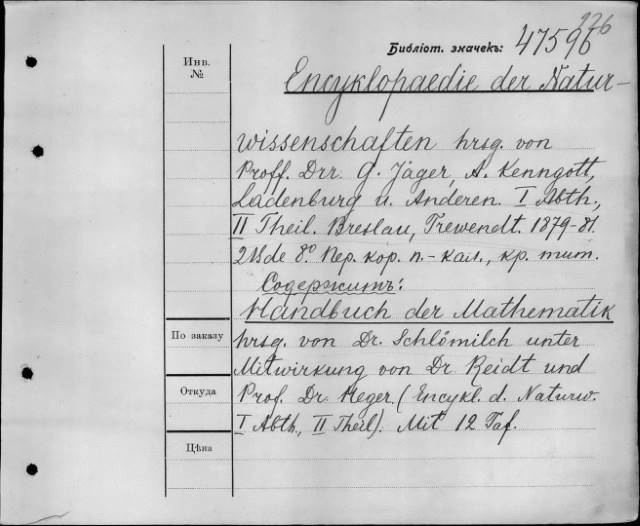 226
Библіот. значекъ: 47596
Инв. №
Encyklopaedie der Natur-
wissenschaften hrsg. von
Proff. Drr. G. Jäger, A. Kenngott,
Ladenburg u. Anderen. I Abth.,
II Theil. Breslau, Trewendt. 1879-81.
2 Bde 8.° Пер. кор. п.-кал., кр. тит.
Содержитъ:
Handbuch der Mathematik
По заказу
hrsg. von Dr. Schlömilch unter
Mitwirkung von Dr Reidt und
Откуда
Prof. Dr. Heger. (Encykl. d. Naturw.
I Abth., II Theil). Mit 12 Taf.
Цѣна